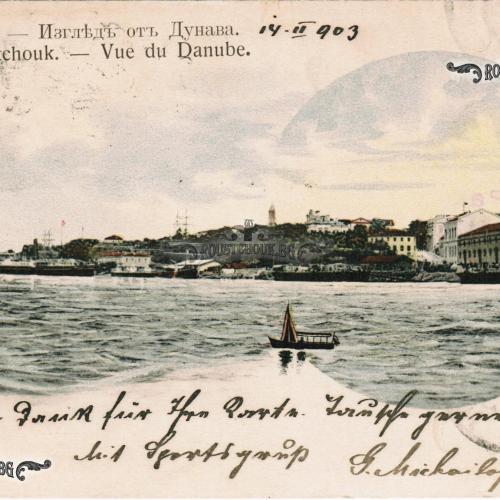 — Изгледъ отъ Дунава. 14-II 903
tchouk. — Vue du Danube.
ROUSTCHOUK.BG
Dank für Ihre Karte. Tausche gerne
Mit Sportsgruß G. Michailo